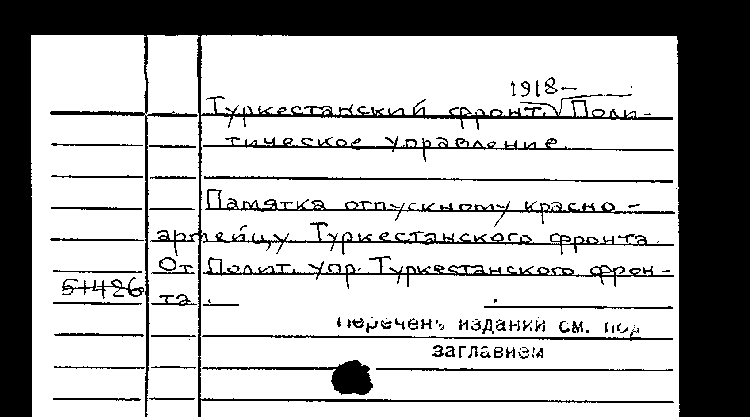 1918-
Туркестанский фронт. Поли-
тическое управление.
Памятка отпускному красно-
армейцу Туркестанского фронта
От Полит. упр. Туркестанского фрон-
5+426 та.
Перечень изданий см. под
заглавием